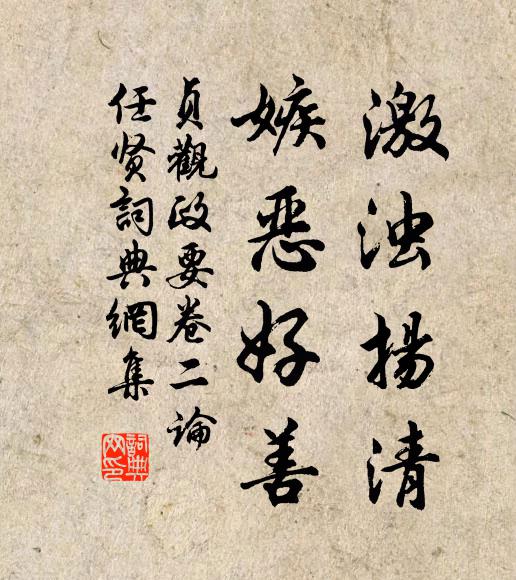 激浊揚清
嫉惡好善
貞觀政要卷二論
任贤詞典網集
詞典網印